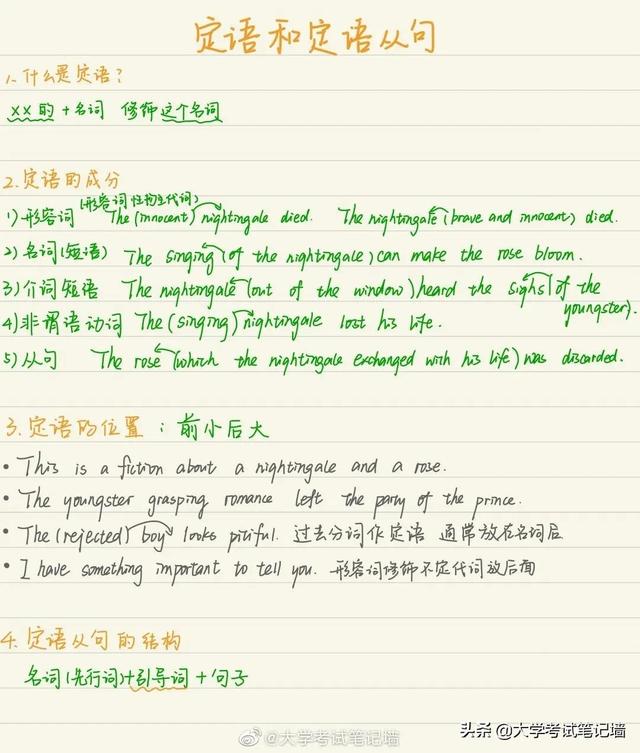 定语和定语从句
1.什么是定语?
XX的+名词 修饰这个名词
2.定语的成分
(形容词性物主代词)
1)形容词 The (innocent) nightingale died. The nightingale (brave and innocent) died.
2)名词(短语) The singing (of the nightingale) can make the rose bloom.
3)介词短语 The nightingale (out of the window) heard the sighs (of the
youngster).
4)非谓语动词 The (singing) nightingale lost his life.
5)从句 The rose (which the nightingale exchanged with his life) was discarded.
3.定语的位置:前小后大
• This is a fiction about a nightingale and a rose.
• The youngster grasping romance left the party of the prince.
• The (rejected) boy looks pitiful. 过去分词作定语 通常放在名词后
• I have something important to tell you. 形容词修饰不定代词放后面
4.定语从句的结构
名词(先行词)+引导词+句子
@大学考试笔记墙
头条 @大学考试笔记墙